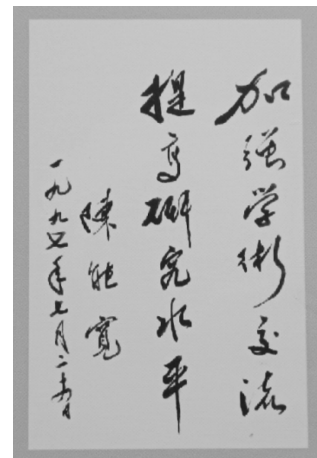 加强学術交流
提高研究水平
陳能寬
一九九七年七月二十五日